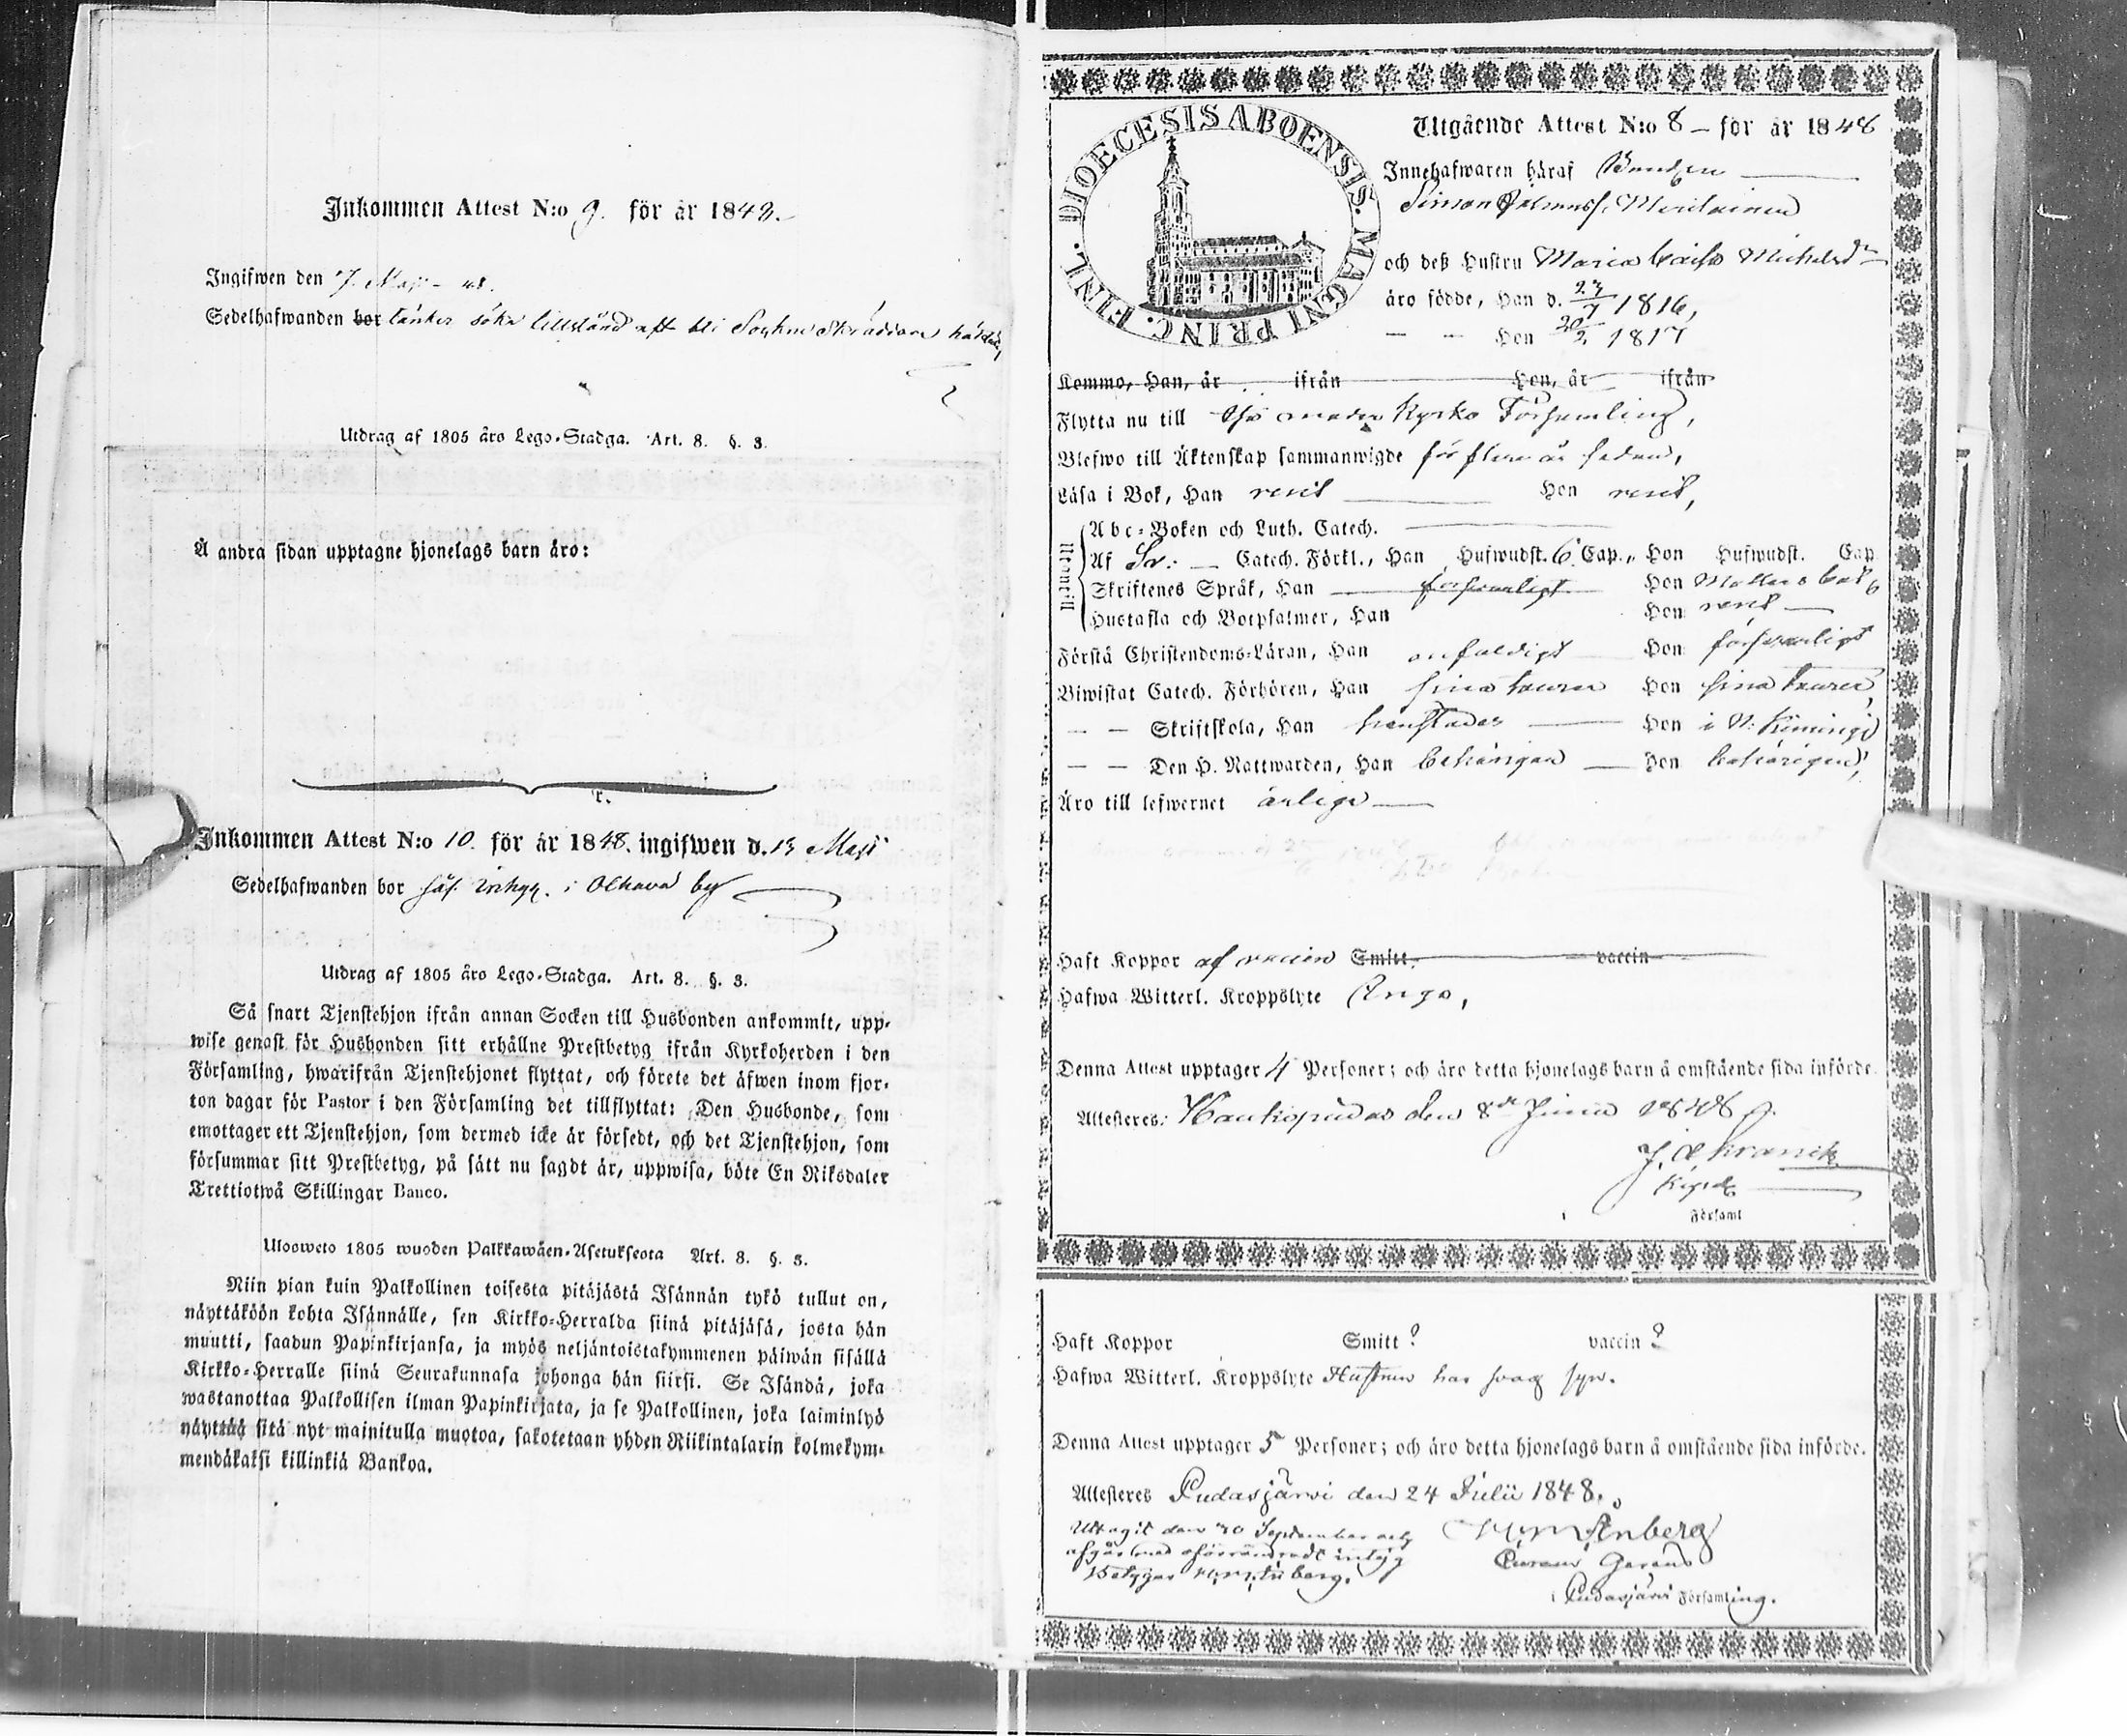 Inkommen Attest N:o 9. för år 1848.
Ingifwen den 7. Maji - 48.
Sedelhafwanden bor tänker söka tillstånd att bli Sockne Skräddare
Utdrag af 1805 års Lego-Stadga. Art. 8. §. 3.
Å andra sidan upptagne hjonelags barn äro:
Inkommen Attest N:o 10. för år 1848. ingifwen d. 13 Maji
Sedelhafwanden bor säs. inhys. i Olhava by
Utdrag af 1805 års Lego-Stadga. Art. 8. §. 3.
Så snart Tjenstehjon ifrån annan Socken till Husbonden ankommit, upp-
wise genast för Husbonden sitt erhållne Prestbetyg ifrån Kyrkoherden i den
Församling, hwarifrån Tjenstehjonet flyttat, och förete det äfwen inom fjor-
ton dagar för Pastor i den Församling det tillflyttat: Den Husbonde, som
emottager ett Tjenstehjon, som dermed icke är försedt, och det Tjenstehjon, som
försummar sitt Prestbetyg, på sätt nu sagdt är, uppwisa, böte En Riksdaler
Trettiotwå Skillingar Banco.
Ulosweto 1805 wuoden Palkkawäen-Asetuksesta Art. 8. §. 3.
Niin pian kuin Palkollinen toisesta pitäjästä Isännän tykö tullut on,
näyttäköön kohta Isännälle, sen Kirkko-Herralda siinä pitäjäsä, josta hän
muutti, saadun Papinkirjansa, ja myös neljäntoistakymmenen päiwän sisällä
Kirkko-Herralle siinä Seurakunnasa johonga hän siirsi. Se Isändä, joka
wastanottaa Palkollisen ilman Papinkirjata, ja se Palkollinen, joka laiminlyö
näyttää sitä nyt mainitulla muotoa, sakotetaan yhden Riikintalarin kolmekym-
mendäkaksi killinkiä Bankoa.
DIOECESIS ABOENSIS. MAGNI PRINC. FINL.
Utgående Attest N:o 8 - för år 1848
Innehafwaren häraf Bonden
Simon Meriläinen
och deß Hustru Maria Caisa Michelsdr
äro födde, Han d. 23/7 1816,
— — Hon 20/2 1817
Kommo, Han, år ifrån Hon, år ifrån
Flytta nu till Kyrko Församling,
Blefwo till Äktenskap sammanwigde för flera år sedan,
Läsa i Bok, Han rent Hon rent,
Abc-Boken och Luth. Catech.
Af Sv: Catech. Förkl., Han Hufwudst. 6 Cap., Hon Hufwudst. Cap
Skriftenes Språk, Han försvarligt Hon
Hustafla och Botpsalmer, Han Hon rent
Förstå Christendoms-Läran, Han enfaldigt Hon försvarligt
Biwistat Catech. Förhören, Han sina turer Hon sina turer,
— — Skriftskola, Han Hon i N: Kimingi
— — Den H. Nattwarden, Han behörigen Hon behörigen,
Äro till lefwernet ärliga
Haft Koppor af vaccin Smitt. vaccin
Hafwa Witterl. Kroppslyte Inga,
Denna Attest upptager 4 Personer; och äro detta hjonelags barn å omstående sida införde.
Attesteres: Haukipudas den 8de Junii 1848
J. Ekranik
Kapel.
Församl
Haft Koppor Smitt? vaccin?
Hafwa Witterl. Kroppslyte Hustrun har svag syn.
Denna Attest upptager 5 Personer; och äro detta hjonelags barn å omstående sida införde.
Attesteres Pudasjärvi den 24 Julii 1848.
Uttagit den 30 September och
afgår med oförändradt intyg
Betygar Stenberg.
Stenberg
Curam Gerens
i Pudasjärvi Församling.